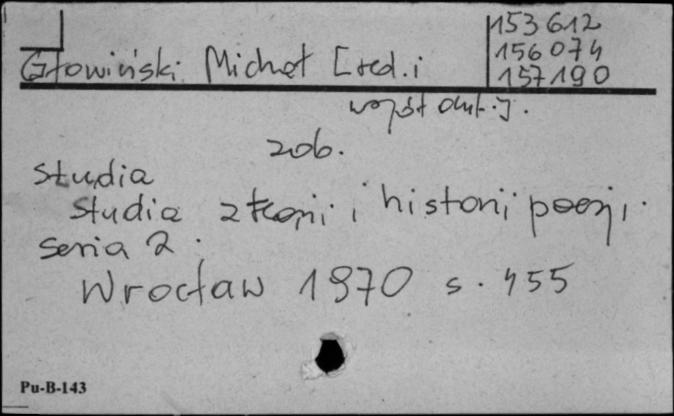 153612
156074
157190
Głowiński Michał [red. i
współaut.].
zob.
Studia
Studia z teorii i historii poezji.
Seria 2.
Wrocław 1970 s. 455
Pu-B-143